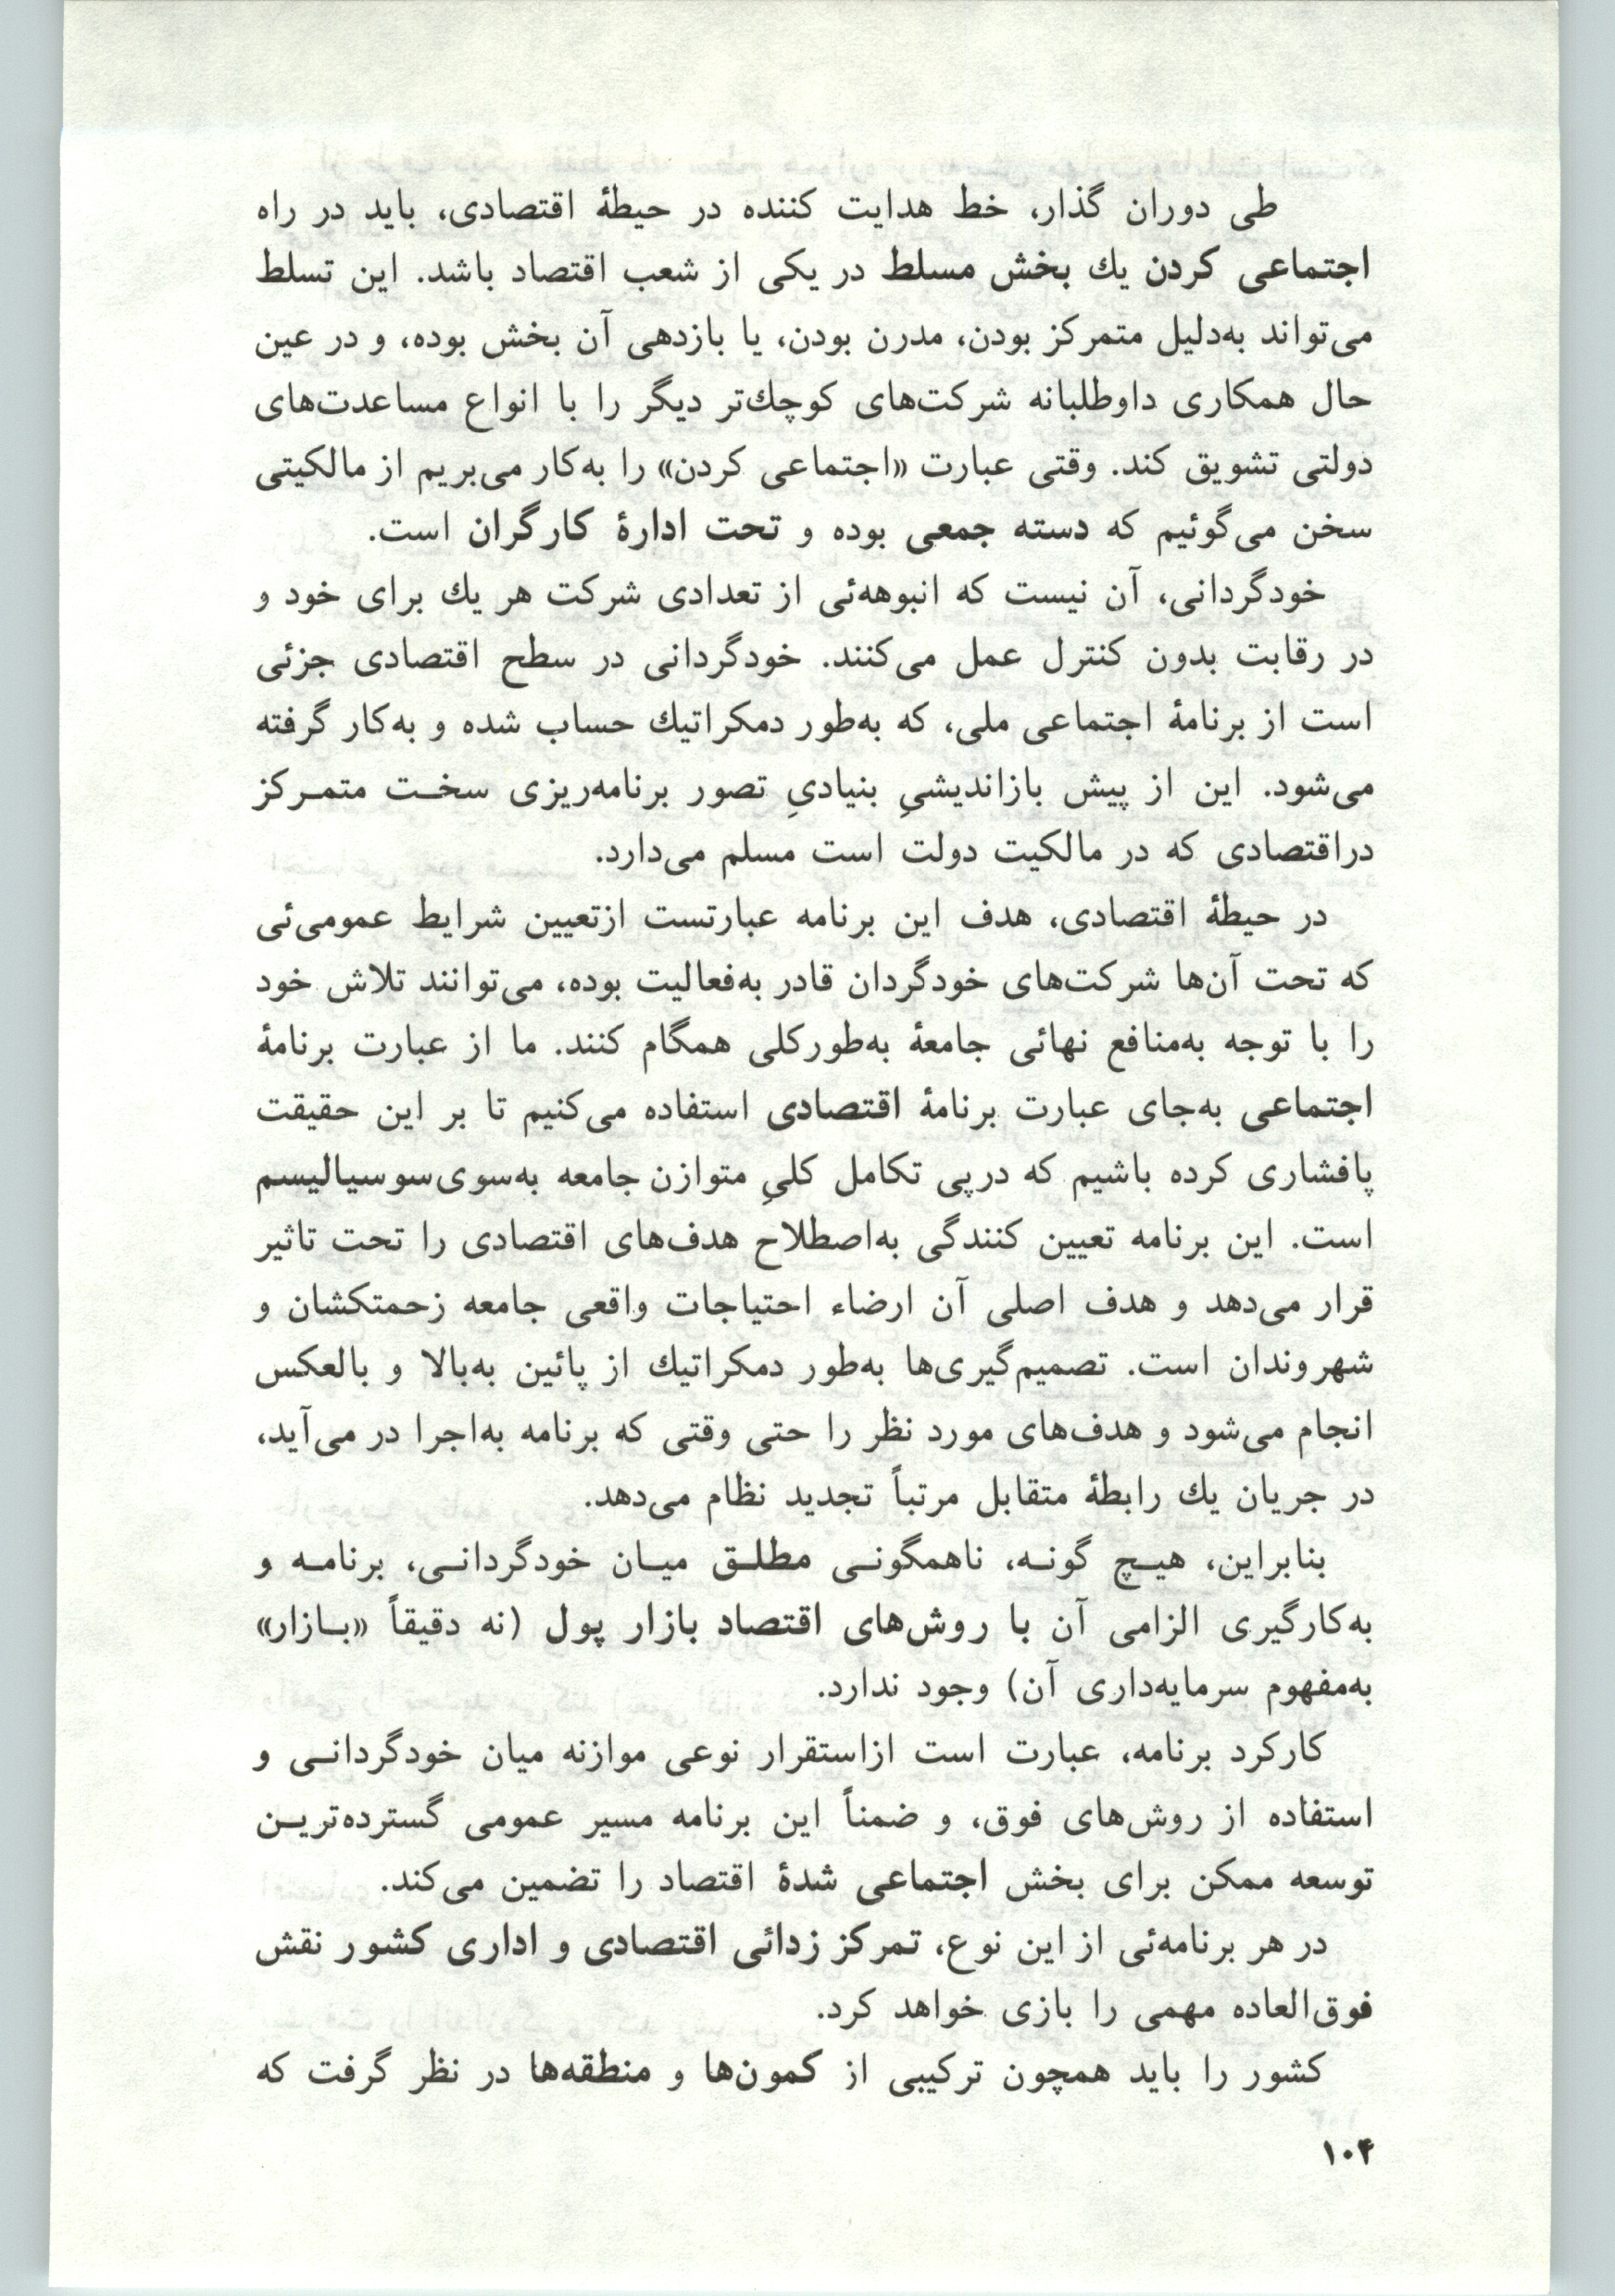 طی دوران گذار، خط هدایت کننده در حیطهٔ اقتصادی، باید در راه
اجتماعی کردن یك بخش مسلط در یکی از شعب اقتصاد باشد. این تسلط
می‌تواند به‌دلیل متمرکز بودن، مدرن بودن، یا بازدهی آن بخش بوده، و در عین
حال همکاری داوطلبانه شرکت‌های کوچك‌تر دیگر را با انواع مساعدت‌های
دولتی تشویق کند. وقتی عبارت «اجتماعی کردن» را به‌کار می‌بریم از مالکیتی
سخن می‌گوئیم که دسته جمعی بوده و تحت ادارهٔ کارگران است.
خودگردانی، آن نیست که انبوهه‌ئی از تعدادی شرکت هر یك برای خود و
در رقابت بدون کنترل عمل می‌کنند. خودگردانی در سطح اقتصادی جزئی
است از برنامهٔ اجتماعی ملی، که به‌طور دمکراتیك حساب شده و به‌کار گرفته
می‌شود. این از پیش بازاندیشیِ بنیادیِ تصور برنامه‌ریزی سخـت متمـرکز
دراقتصادی که در مالکیت دولت است مسلم می‌دارد.
در حیطهٔ اقتصادی، هدف این برنامه عبارتست ازتعیین شرایط عمومی‌ئی
که تحت آن‌ها شرکت‌های خودگردان قادر به‌فعالیت بوده، می‌توانند تلاش خود
را با توجه به‌منافع نهائی جامعهٔ به‌طورکلی همگام کنند. ما از عبارت برنامهٔ
اجتماعی به‌جای عبارت برنامهٔ اقتصادی استفاده می‌کنیم تا بر این حقیقت
پافشاری کرده باشیم که درپی تکامل کلیِ متوازن جامعه به‌سوی‌سوسیالیسم
است. این برنامه تعیین کنندگی به‌اصطلاح هدف‌های اقتصادی را تحت تاثیر
قرار می‌دهد و هدف اصلی آن ارضاء احتیاجات واقعی جامعه زحمتکشان و
شهروندان است. تصمیم‌گیری‌ها به‌طور دمکراتیك از پائین به‌بالا و بالعکس
انجام می‌شود و هدف‌های مورد نظر را حتی وقتی که برنامه به‌اجرا در می‌آید،
در جریان یك رابطهٔ متقابل مرتباً تجدید نظام می‌دهد.
بنابراین، هیـچ گونـه، ناهمگونـی مطلـق میـان خودگردانـی، برنامـه و
به‌کارگیری الزامی آن با روش‌های اقتصاد بازار پول (نه دقیقاً «بـازار»
به‌مفهوم سرمایه‌داری آن) وجود ندارد.
کارکرد برنامه، عبارت است ازاستقرار نوعی موازنه میان خودگردانـی و
استفاده از روش‌های فوق، و ضمناً این برنامه مسیر عمومی گسترده‌تریـن
توسعه ممکن برای بخش اجتماعی شدهٔ اقتصاد را تضمین می‌کند.
در هر برنامه‌ئی از این نوع، تمرکز زدائی اقتصادی و اداری کشور نقش
فوق‌العاده مهمی را بازی خواهد کرد.
کشور را باید همچون ترکیبی از کمون‌ها و منطقه‌ها در نظر گرفت که
۱۰۴